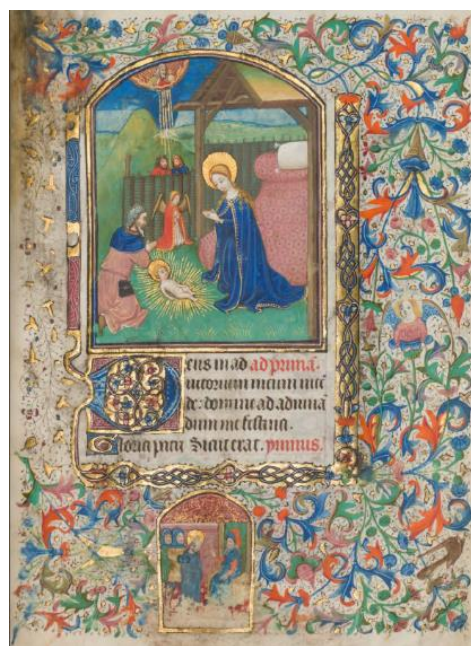 Deus in ad ad primā.
iutorium meum inten
de: domine ad adiuuā
dum me festina.
Gloria patri Sicut erat.